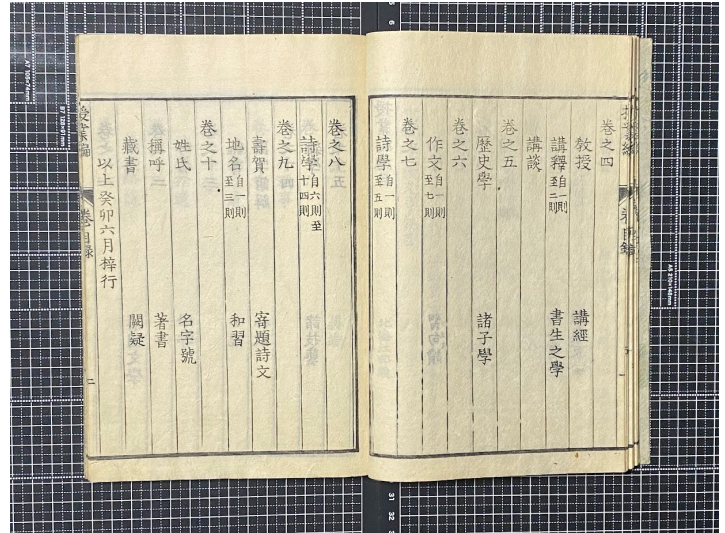 卷之四
教授 講經
講釋自一則至二則 書生之學
講談
卷之五
歷史學 諸子學
卷之六
作文自一則至七則
卷之七
詩學自一則至五則
卷之八
詩學自六則至十四則
卷之九
壽賀 寄題詩文
地名自一則至三則 和習
卷之十
姓氏 名字號
稱呼 著書
藏書 闕疑
以上癸卯六月梓行
授業編 卷目錄 二